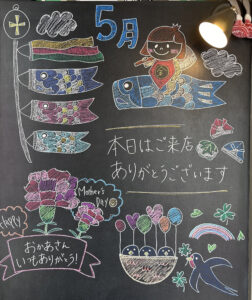 5月
本日はご来店
ありがとうございます
Mother's
Day
Happy
おかあさん
いつもありがとう!